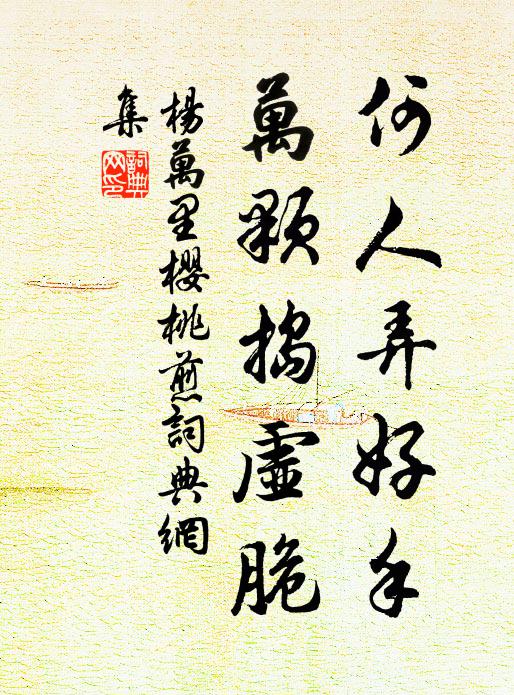 何人弄好手
萬顆搗虛脆
楊萬里櫻桃煎詞典網
集
詞典
网印